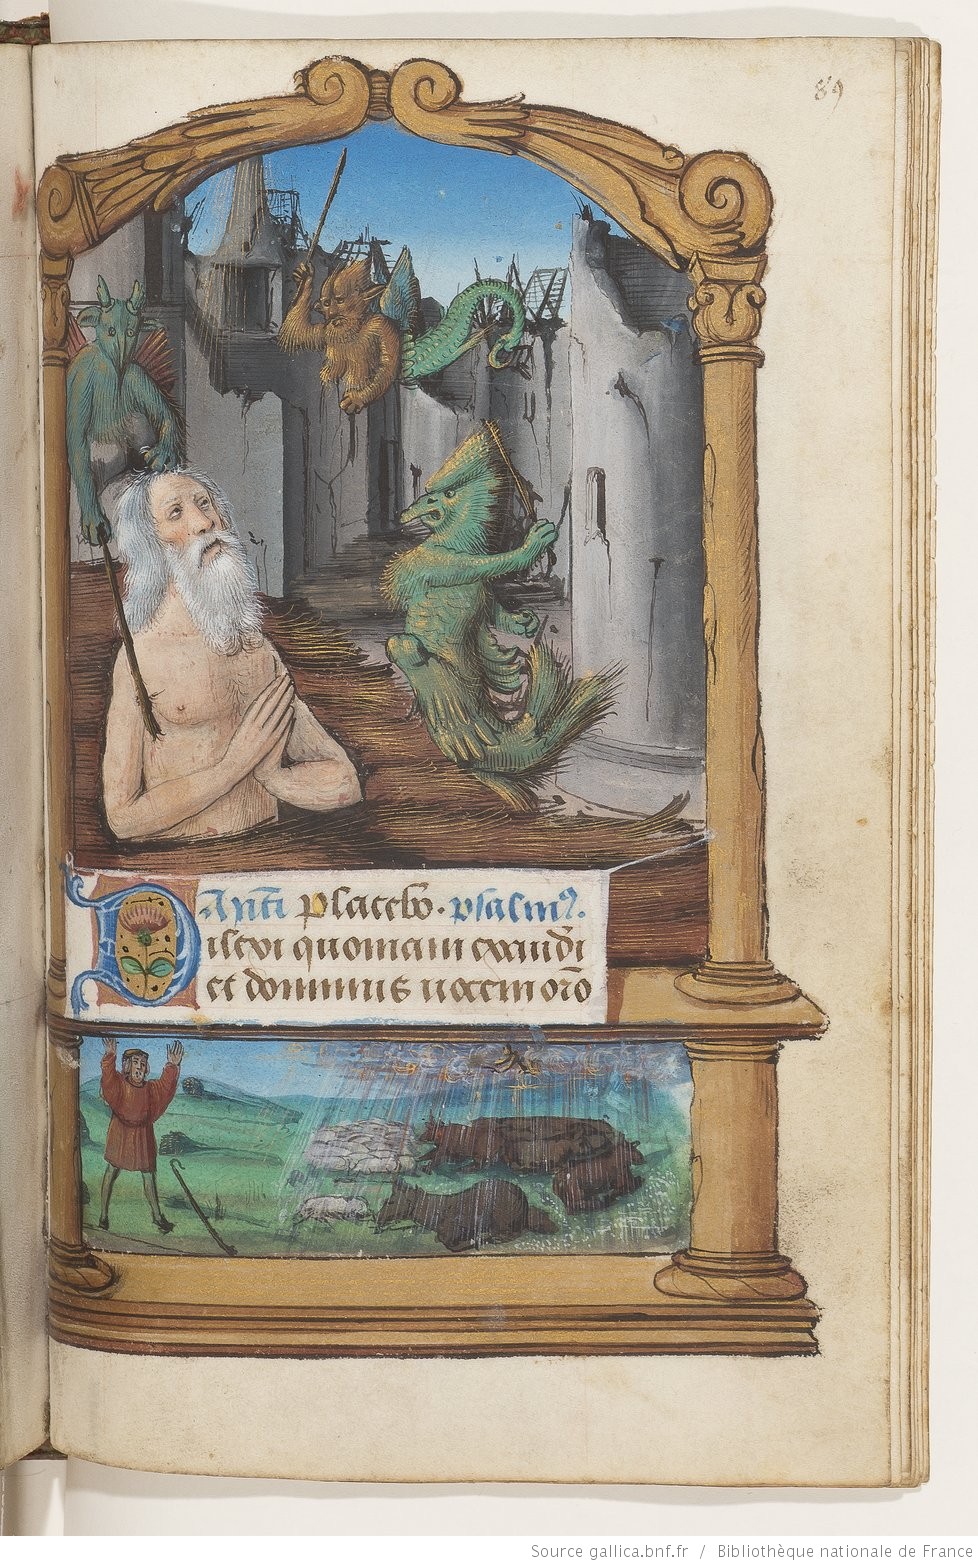 89
Añti placebo. psalmꝰ.
Dilexi quoniam exaudi
et dominus uocem orõ
Source gallica.bnf.fr / Bibliothèque nationale de France